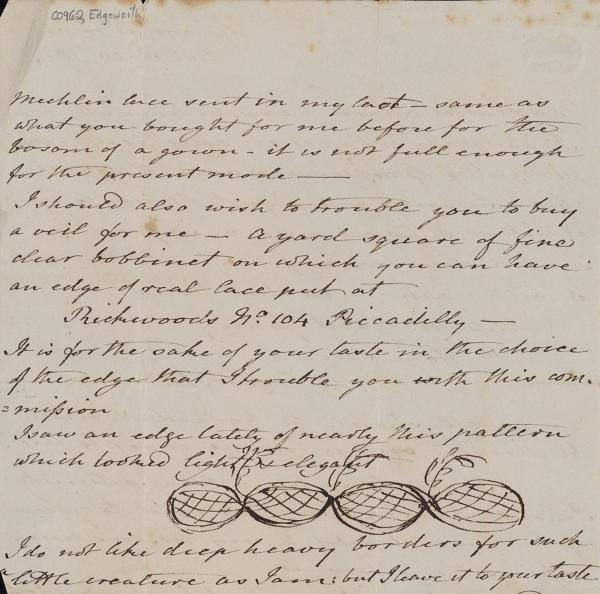 C0962, Edgeworth
Mechlin lace sent in my last – same as
what you bought for me before for the
bosom of a gown – it is not full enough
for the present mode —
I should also wish to trouble you to buy
a veil for me — A yard square of fine
clear bobbinet on which you can have
an edge of real lace put at
Rickwoods No. 104 Piccadilly —
It is for the sake of your taste in the choice
of the edge that I trouble you with this com=
=mission
I saw an edge lately of nearly this pattern
which looked light & elegant
I do not like deep heavy borders for such
little creature as I am: but I leave it to your taste